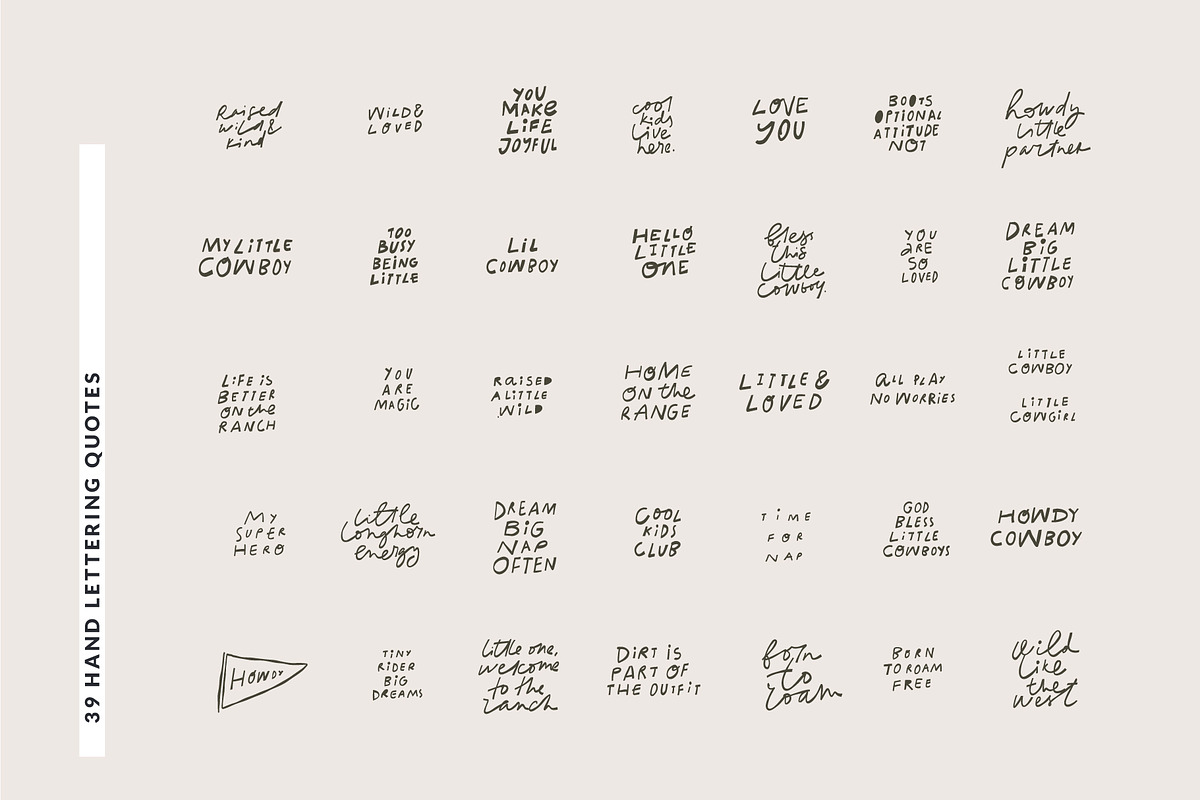 39 HAND LETTERING QUOTES
Raised
wild &
kind
WiLD &
LOVED
YOU
MAKe
LiFE
JOYFUL
cool
kids
live
here.
LOVE
YOU
BOOTS
OPTIONAL
ATTiTUDE
NOT
howdy
little
partner
MY LiTTLE
COWBOY
TOO
BUSY
BEiNG
LiTTLE
LiL
COWBOY
HELLO
LITTLE
ONE
bless
this
little
cowboy.
YOU
aRE
SO
LOVED
DREAM
BiG
LiTTLE
COWBOY
LiFE iS
BETTER
ON the
RANCH
YOU
ARE
MAGiC
RaiSED
A LiTTLE
WiLD
HOME
ON the
RANGE
LITTLE &
LOVED
aLL PLAY
NO WORRiES
LiTTLE
COWBOY
LiTTLE
COWGiRL
MY
SUPER
HERO
little
longhorn
energy
DREAM
BiG
NAP
OFTEN
COOL
KiDS
CLUB
TiME
FOR
NAP
GOD
BLESS
LiTTLE
COWBOYS
HOWDY
COWBOY
HOWDY
TiNY
RiDER
BiG
DREAMS
little one,
welcome
to the
ranch
DiRT iS
PART OF
THE OUTFiT
born
to
roam
BORN
TO ROAM
FREE
wild
like
the
west